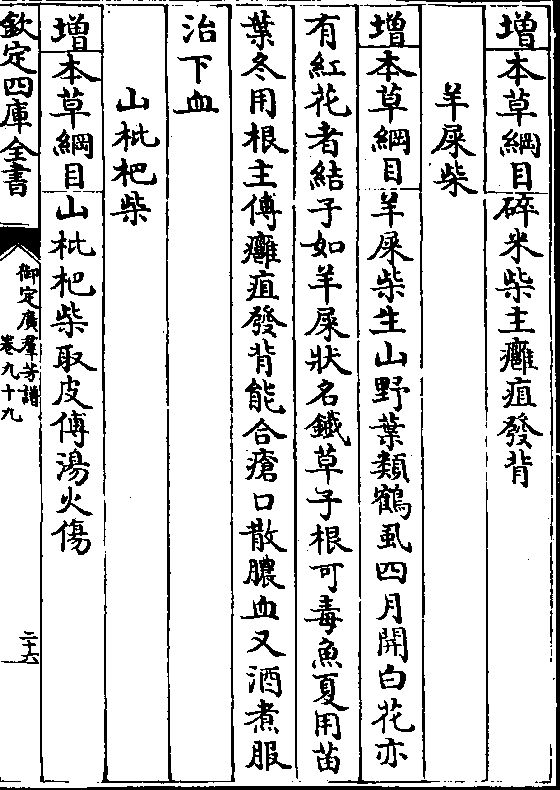 增本草綱目碎米柴主癰疽發背
羊屎柴
增本草綱目羊屎柴生山野葉類鶴虱四月開白花亦
有紅花者結子如羊屎狀名鐵草子根可毒魚夏用苗
葉冬用根主傅癰疽發背能合瘡口散膿血又酒煮服
治下血
山枇杷柴
增本草綱目山枇杷柴取皮傅湯火傷
欽定四庫全書
御定廣羣芳譜
卷九十九
二十六